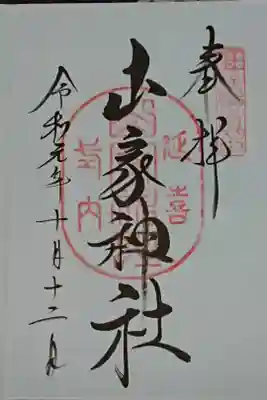 奉拝
山家神社
延喜
式内
令和元年十月十二日